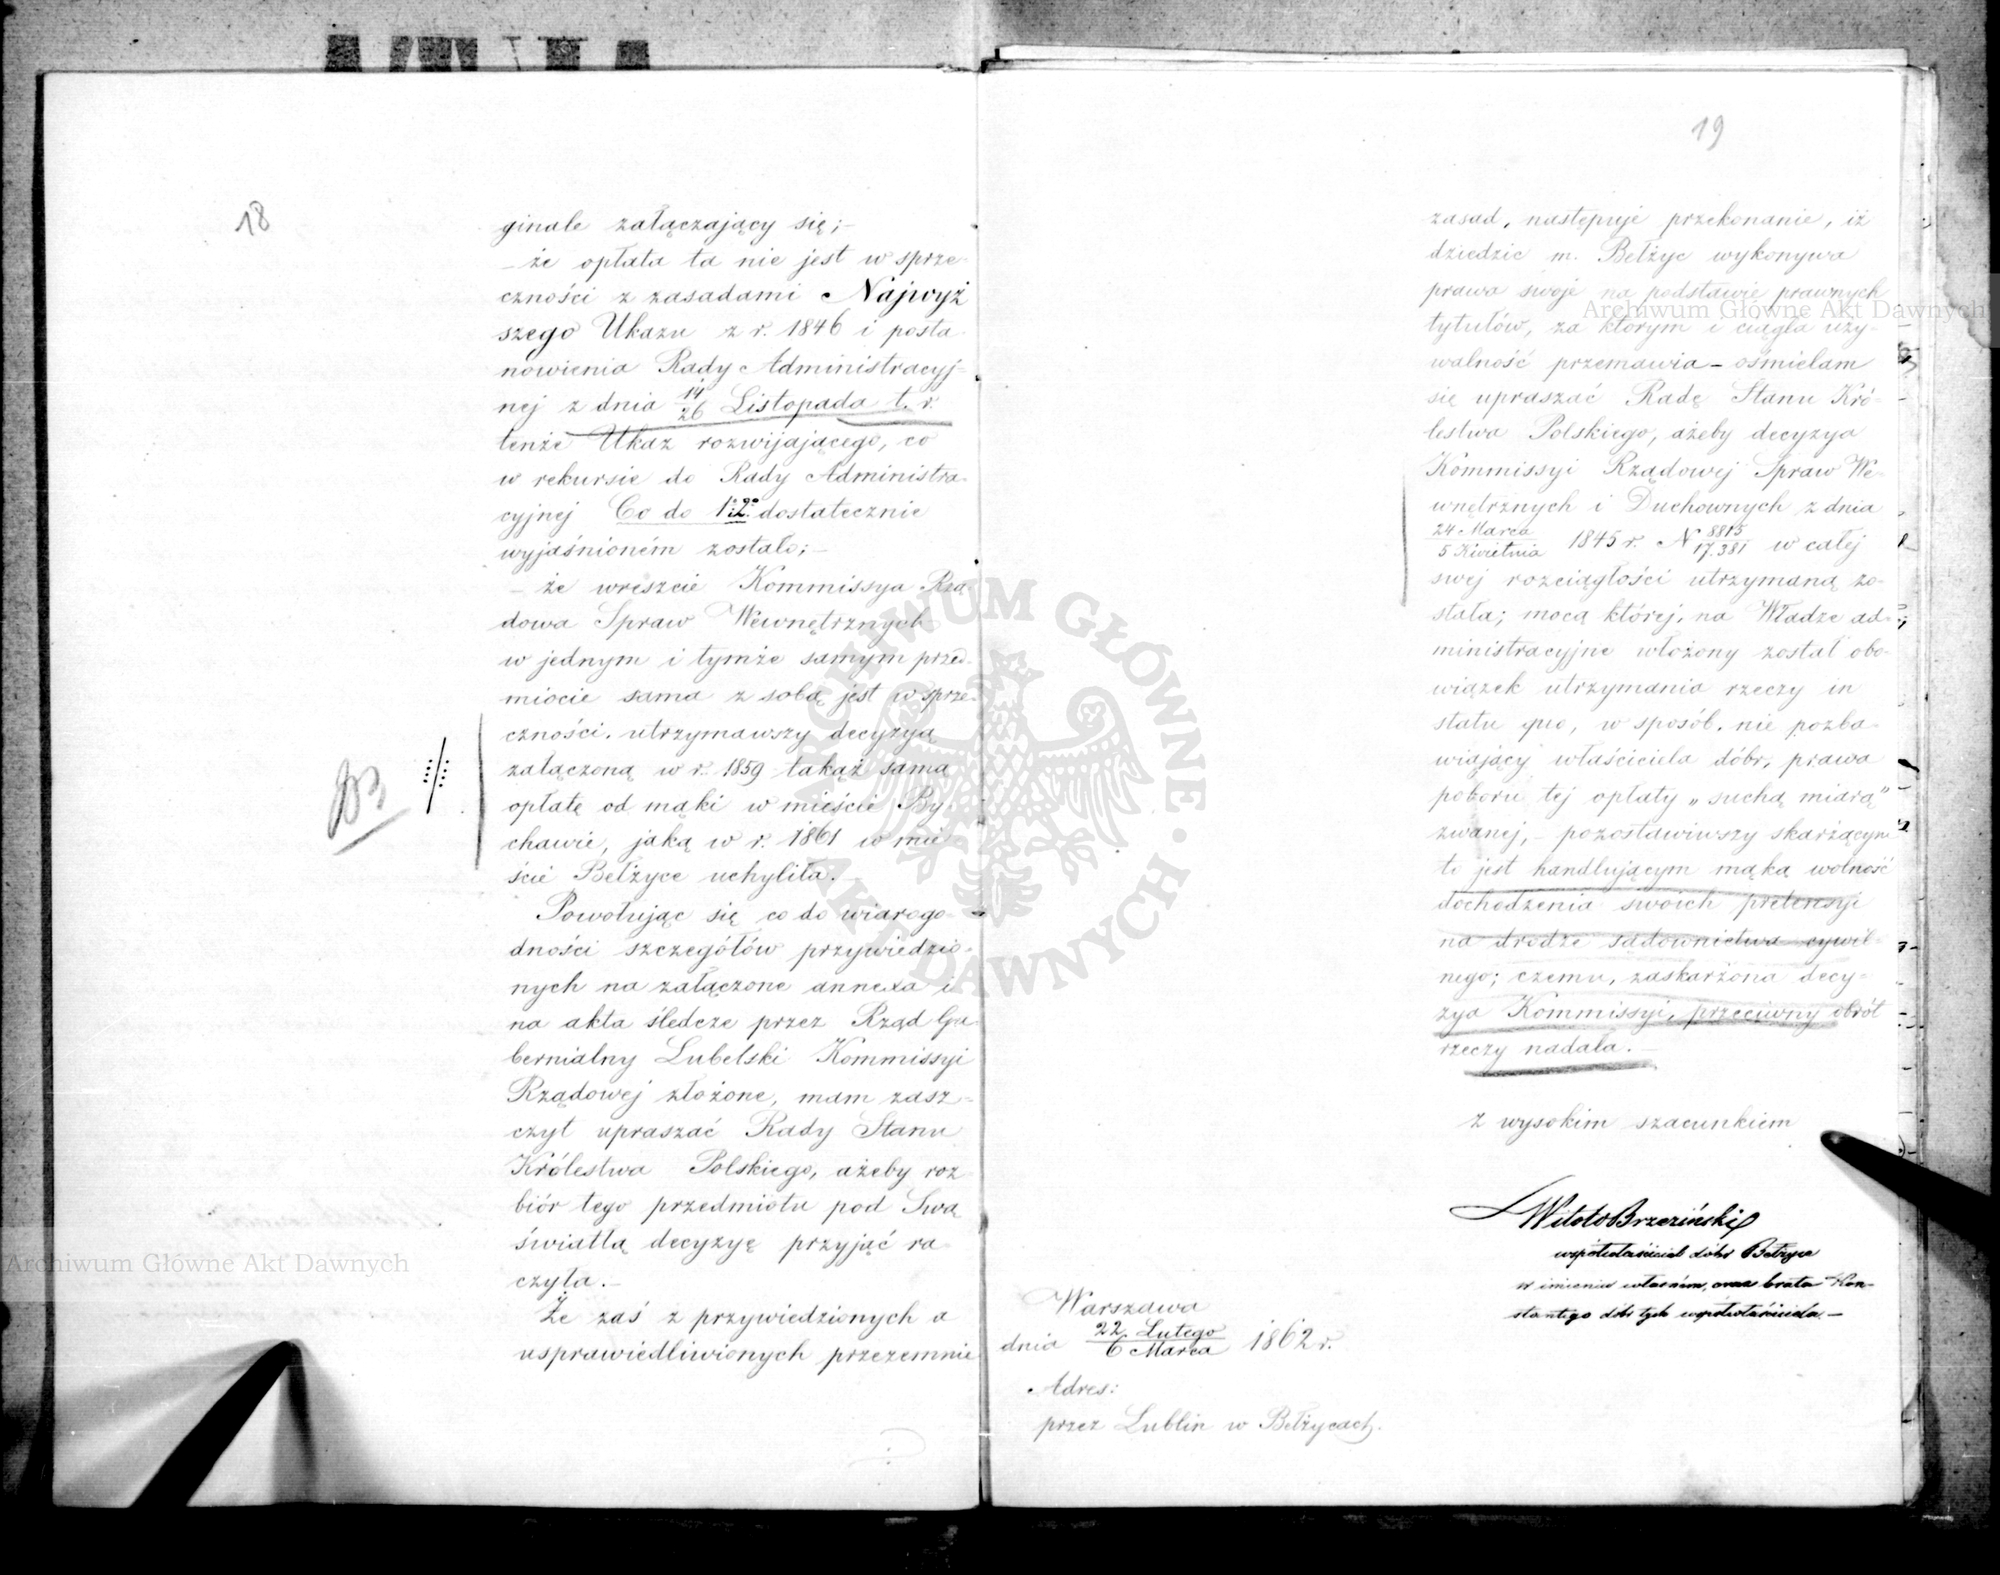 18
ginale załączający się;—
— że opłata ta nie jest w sprze-
czności z zasadami Najwyż
szego Ukazu z r. 1846 i posta
nowienia Rady Administracyj=
nej z dnia 14/26 Listopada t. r.
tenże Ukaz rozwijającego, co
w rekursie do Rady Administra-
cyjnej Co do 1° i 2° dostatecznie
wyjaśnioném zostało;—
— że wreszcie Kommissya Rzą-
dowa Spraw Wewnętrznych
w jednym i tymże samym przed-
miocie sama z sobą jest w sprze-
czności, utrzymawszy decyzyą
załączoną w r. 1859 takąż sama
opłatę od mąki w mieście By-
chawie, jaką w r. 1861 w mie
ście Bełżyce uchyliła.—
Powołując się co do wiarogo-
dności szczegółów przywiedzio-
nych na załączone annexa i
na akta śledcze przez Rząd Gu-
bernialny Lubelski Kommissyi
Rządowej złożone, mam zasz-
czyt upraszać Rady Stanu
Królestwa Polskiego, ażeby roz
biór tego przedmiotu pod Swą
światłą decyzyę przyjąć ra-
czyła.—
Że zaś z przywiedzionych a
usprawiedliwionych przezemnie
19
zasad, następuje przekonanie, iż
dziedzic m. Bełżyc wykonywa
prawa swoje na podstawie prawnych
tytułów, za którym i ciągła uży-
walność przemawia — ośmielam
się upraszać Radę Stanu Kró-
lestwa Polskiego, ażeby decyzya
Kommissyi Rządowej Spraw We-
wnętrznych i Duchownych z dnia
24 Marca/5 Kwietnia 1845 r. N 8815/17.381 w całej
swej rozciągłości utrzymaną zo-
stała; mocą której, na Władze ad-
ministracyjne włożony został obo-
wiązek utrzymania rzeczy in
statu quo, w sposób, nie pozba-
wiający właściciela dóbr, prawa
poboru tej opłaty „suchą miarą"
zwanej,— pozostawiwszy skarżącym
to jest handlującym mąką wolność
dochodzenia swoich pretensyi
na drodze sądownictwa cywil-
nego; czemu, zaskarżona decy-
zya Kommissyi, przeciwny obrót
rzeczy nadała.—
Z wysokim szacunkiem
Witold Brzeziński
współwłaściciel dóbr Bełżyce
w imieniu własném, oraz brata Kon-
stantego dóbr tych współwłaściciela.—
Warszawa
dnia 22 Lutego/6 Marca 1862 r.
Adres:
przez Lublin w Bełżycach.
Archiwum Główne Akt Dawnych
Archiwum Główne Akt Dawnych
ARCHIWUM GŁÓWNE · AKT DAWNYCH ·